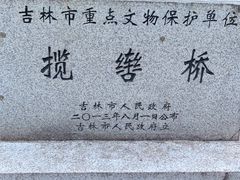 吉林市重点文物保护单位
揽辔桥
吉林市人民政府
二〇一三年八月一日公布
吉林市人民政府立